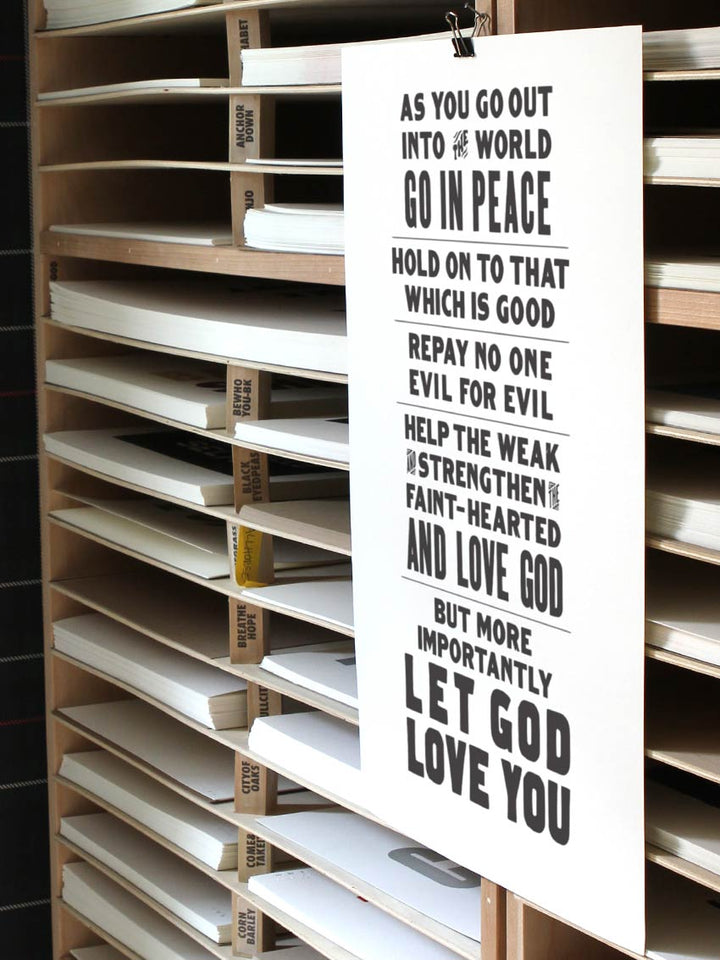 ANCHOR
DOWN
GOD
BEWHO
YOU-BK
BLACK
EYEDPEAS
BREATHE
HOPE
CITYOF
OAKS
COME&
TAKE
CORN
BARLEY
AS YOU GO OUT
INTO THE WORLD
GO IN PEACE
HOLD ON TO THAT
WHICH IS GOOD
REPAY NO ONE
EVIL FOR EVIL
HELP THE WEAK
AND STRENGTHEN THE
FAINT-HEARTED
AND LOVE GOD
BUT MORE
IMPORTANTLY
LET GOD
LOVE YOU